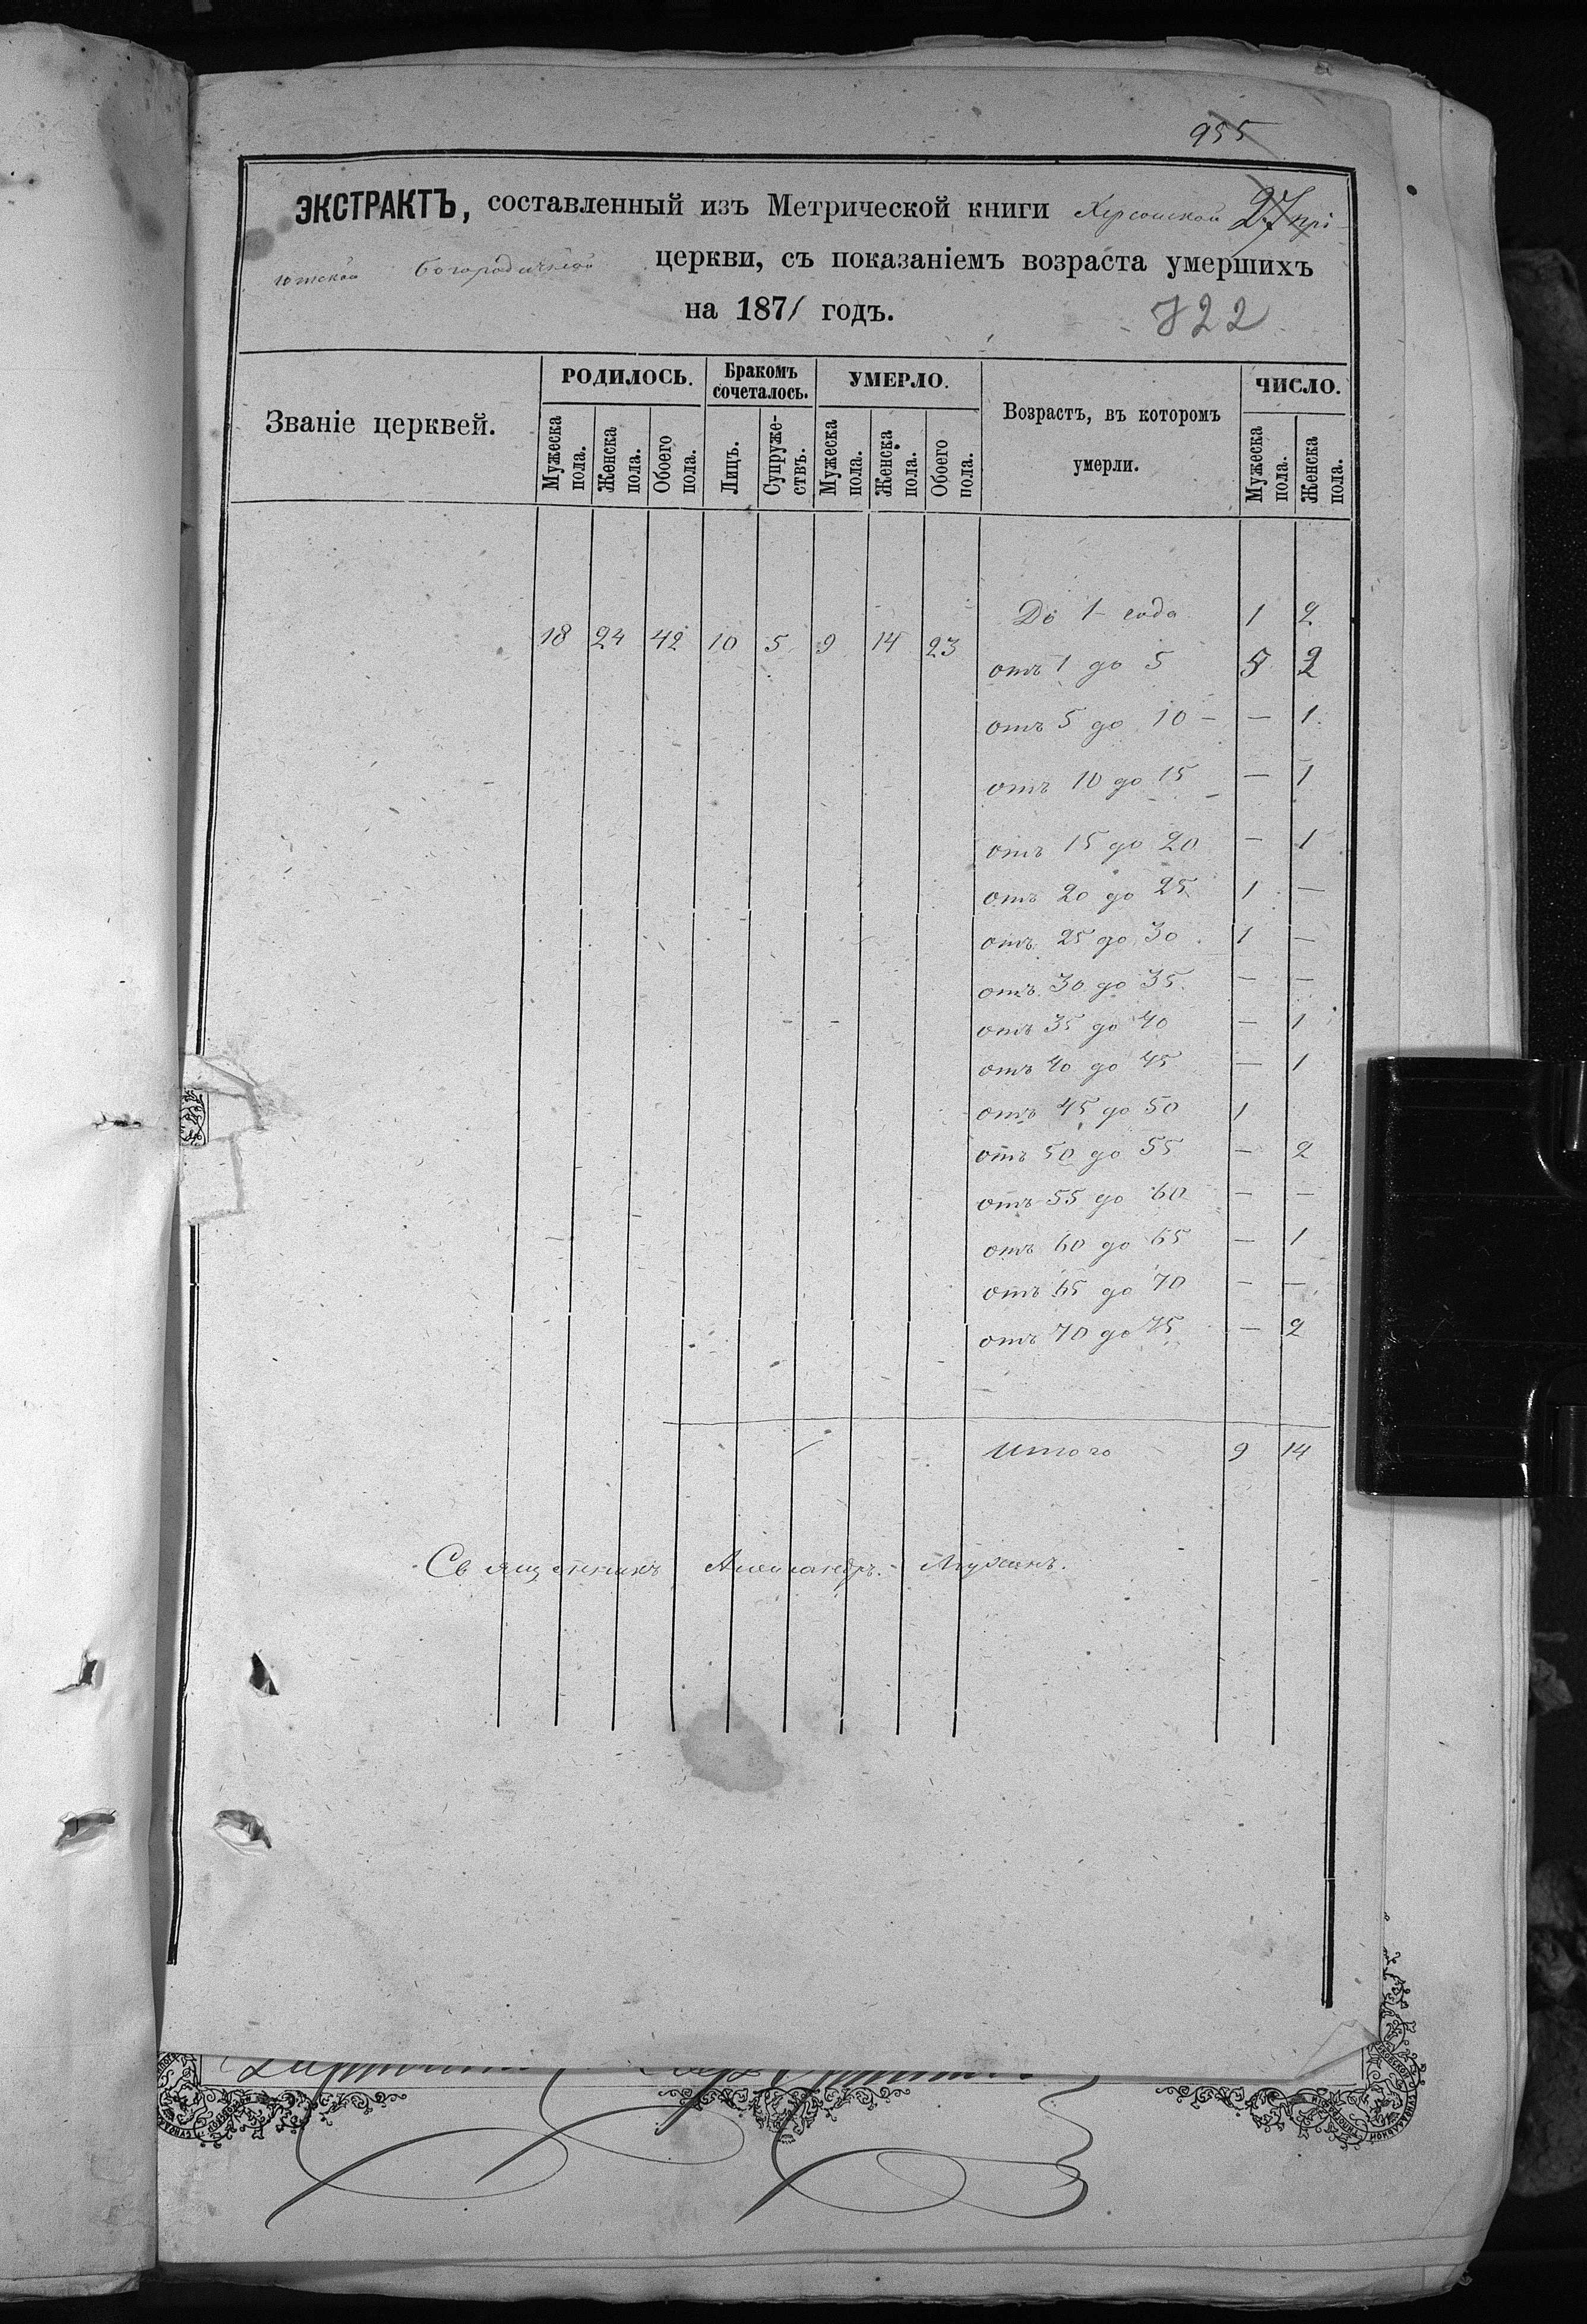 955
ЭКСТРАКТЪ, составленный изъ Метрической книги Херсонской 27 прі-
ютской Богородичной церкви, съ показаніемъ возраста умершихъ
на 1871 годъ.
722
Званіе церквей.
РОДИЛОСЬ.
Бракомъ сочеталось.
УМЕРЛО.
Возрастъ, въ которомъ умерли.
ЧИСЛО.
Мужеска пола.
Женска пола.
Обоего пола.
Лицъ.
Супружествъ.
Мужеска пола.
Женска пола.
Обоего пола.
Мужеска пола.
Женска пола.
18 24 42 10 5 9 14 23
До 1 года 1 2
отъ 1 до 5 5 2
отъ 5 до 10 – — 1
отъ 10 до 15 — 1
отъ 15 до 20 — 1
отъ 20 до 25 1 —
отъ 25 до 30 1 —
отъ 30 до 35 — —
отъ 35 до 40 — 1
отъ 40 до 45 — 1
отъ 45 до 50 1
отъ 50 до 55 — 2
отъ 55 до 60 — —
отъ 60 до 65 — 1
отъ 65 до 70 — —
отъ 70 до 75 — 2
Итого 9 14
Священникъ Александръ